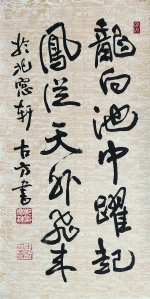 龍向池中躍起
鳳從天外飛來
於兆窓軒 古方書